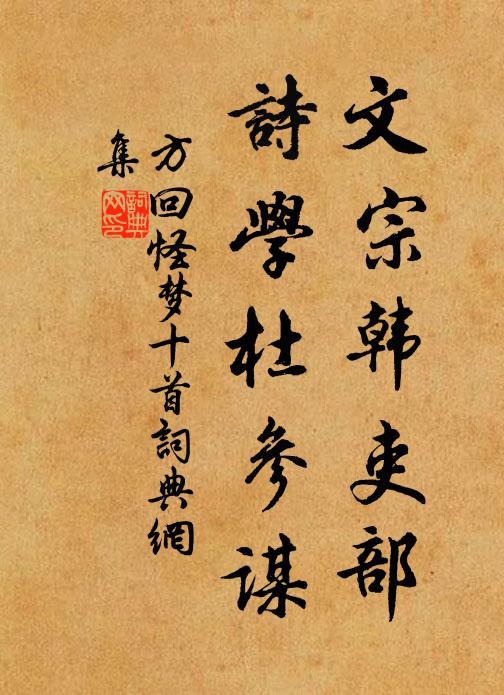 文宗韩吏部
詩學杜參谋
方回怪梦十首詞典網
集
詞典
网印